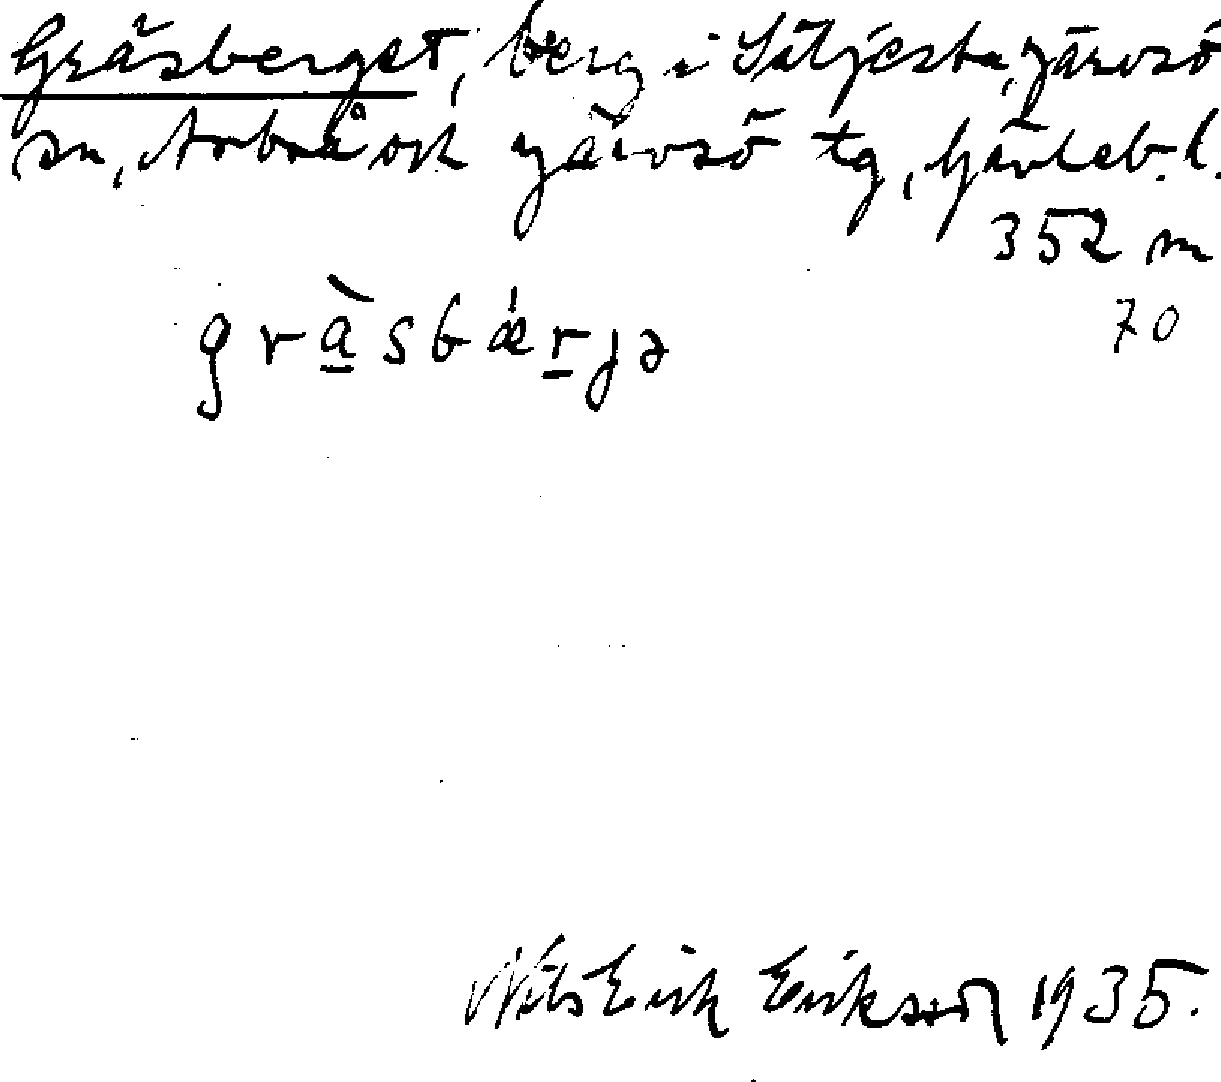 Gräsberget, berg i Säljesta, Järvsö
sn, Arbrå och Järvsö tg, Gävleb. l.
352 m
70
gràsbǽrjə
Nils Erik Eriksson 1935.